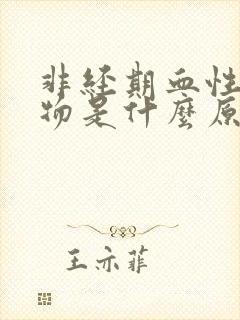 非经期血性
物是什麼原
王亦菲